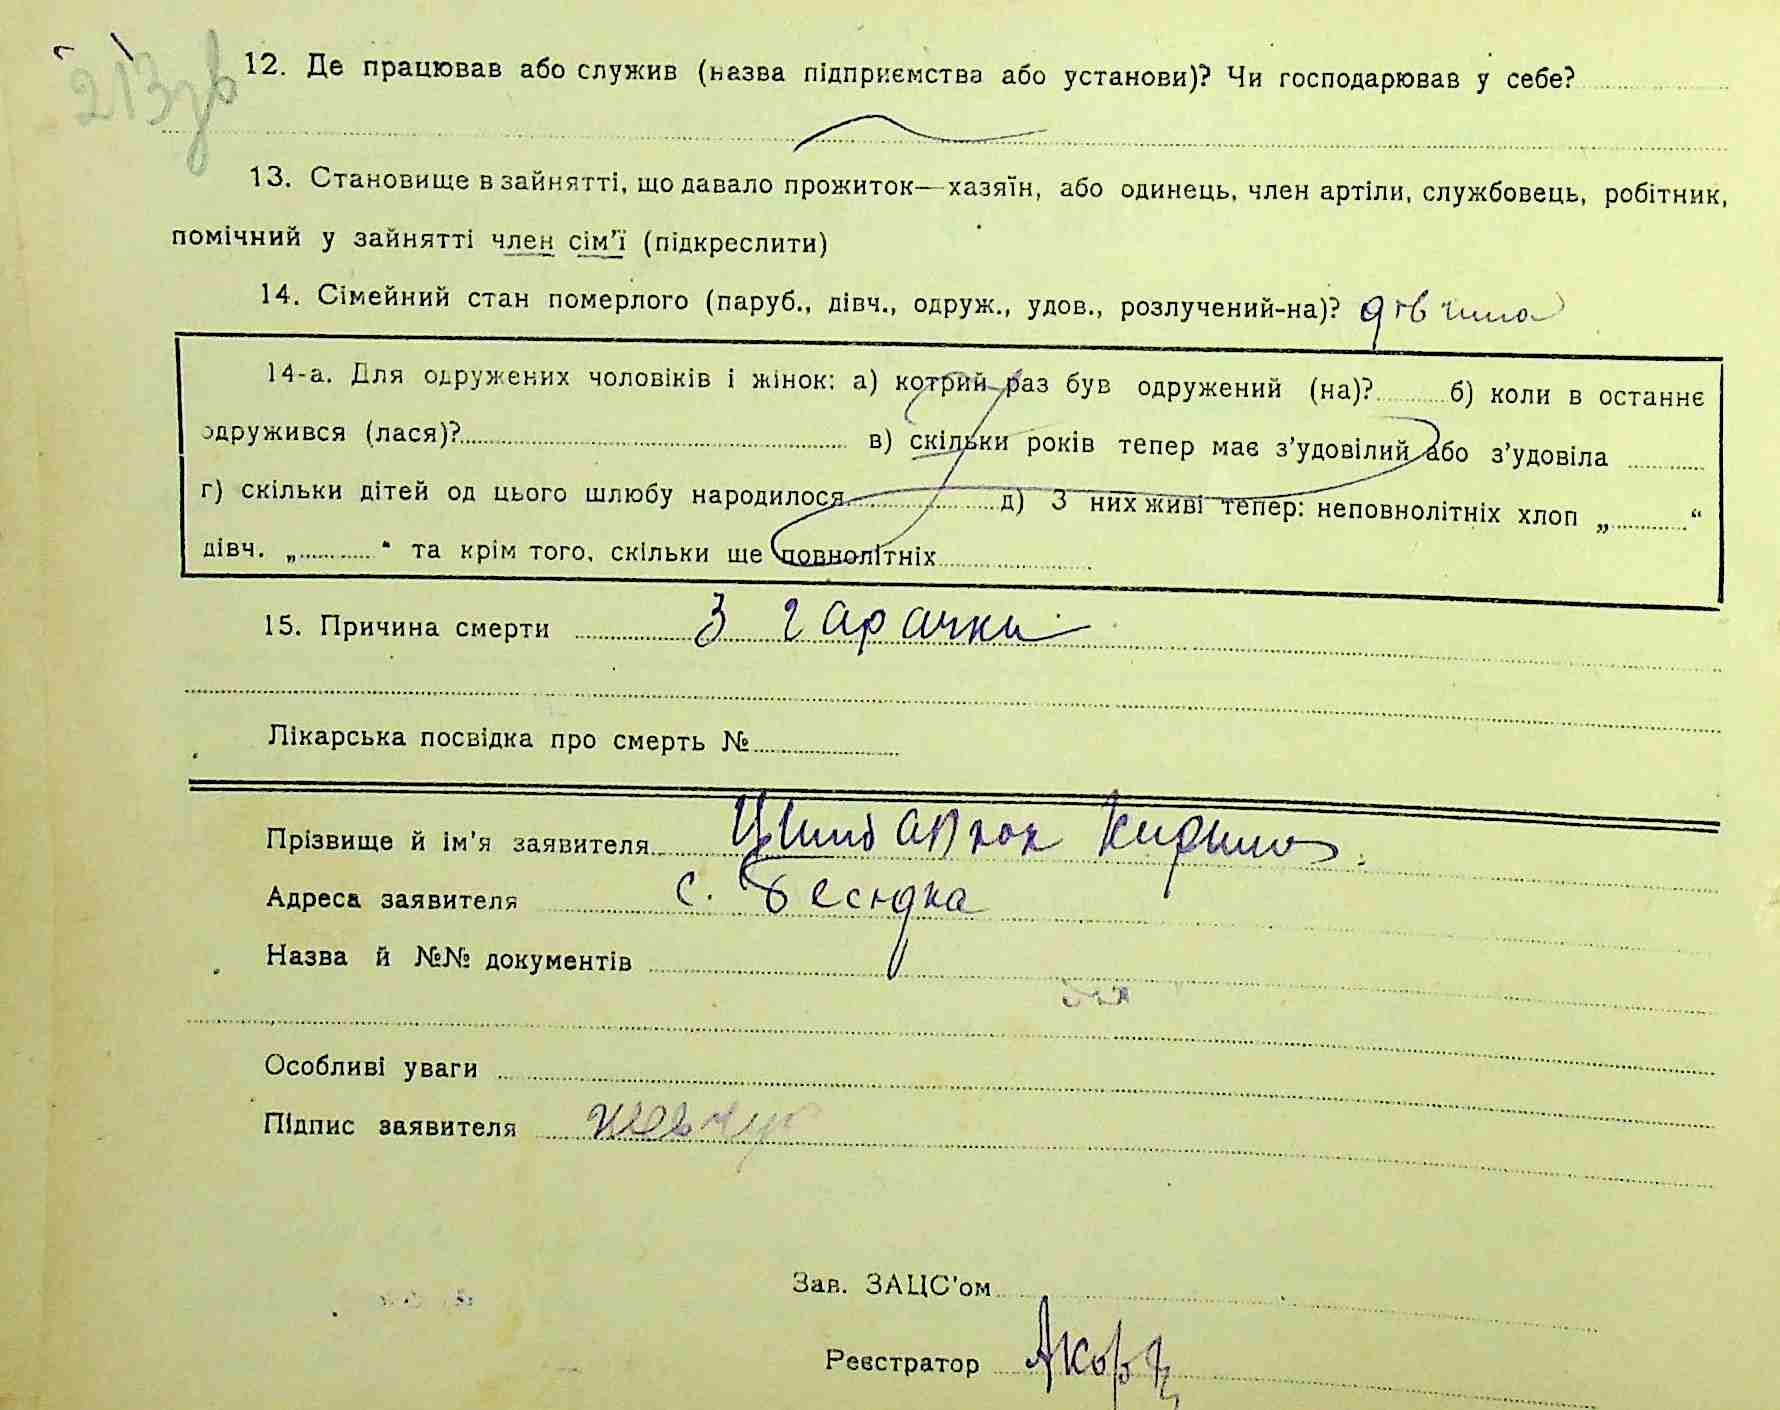 213зв
12. Де працював або служив (назва підприємства або установи)? Чи господарював у себе?
13. Становище в зайнятті, що давало прожиток—хазяїн, або одинець, член артіли, службовець, робітник,
помічний у зайнятті член сім'ї (підкреслити)
14. Сімейний стан померлого (паруб., дівч., одруж., удов., розлучений-на)? дівчина
14-а. Для одружених чоловіків і жінок: а) котрий раз був одружений (на)? б) коли в останнє
одружився (лася)? в) скільки років тепер має з'удовілий або з'удовіла
г) скільки дітей од цього шлюбу народилося д) З них живі тепер: неповнолітніх хлоп „ “
дівч. „ “ та крім того, скільки ще повнолітніх
15. Причина смерти З гарачки
Лікарська посвідка про смерть №
Прізвище й ім'я заявителя Кирило
Адреса заявителя с. Бесідка
Назва й №№ документів
Особливі уваги
Підпис заявителя
Зав. ЗАЦС'ом
Реєстратор